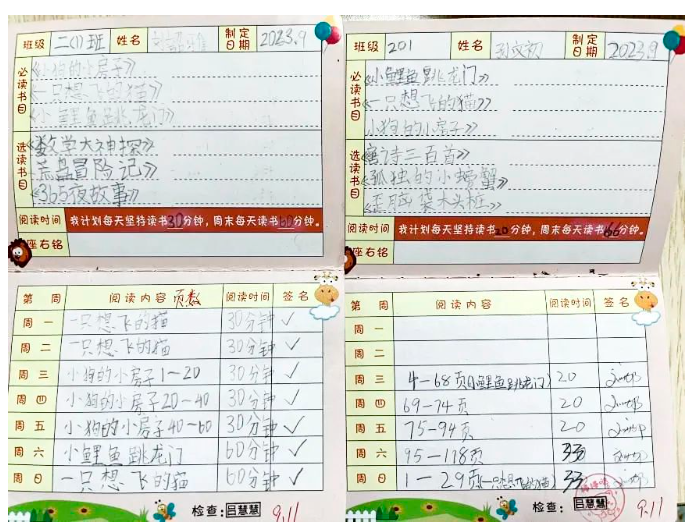 班级 二(1)班 姓名 制定日期 2023.9
必读书目
《小狗的小房子》
《一只想飞的猫》
《小鲤鱼跳龙门》
选读书目
《数学大神探》
荒岛冒险记》
《365夜故事》
阅读时间 我计划每天坚持读书30分钟，周末每天读书60分钟。
座右铭
第 周 阅读内容 页数 阅读时间 签名
周一 一只想飞的猫 30分钟 ✓
周二 一只想飞的猫 30分钟 ✓
周三 小狗的小房子1-20 30分钟 ✓
周四 小狗的小房子20-40 30分钟 ✓
周五 小狗的小房子40-60 30分钟 ✓
周六 小鲤鱼跳龙门 60分钟 ✓
周日 一只想飞的猫 60分钟 ✓
检查：吕慧慧 9.11
班级 201 姓名 制定日期 2023.9
必读书目
《小鲤鱼跳龙门》
《一只想飞的猫》
小狗的小房子》
选读书目
《唐诗三百首》
《孤独的小螃蟹》
阅读时间 我计划每天坚持读书20分钟，周末每天读书66分钟。
座右铭
第 周 阅读内容 阅读时间 签名
周一
周二
周三 4-68页(小鲤鱼跳龙门) 20
周四 69-74页 20
周五 75-94页 20
周六 95-118页 33
周日 1-29页(一只想飞的猫) 33
检查：吕慧慧 9.11